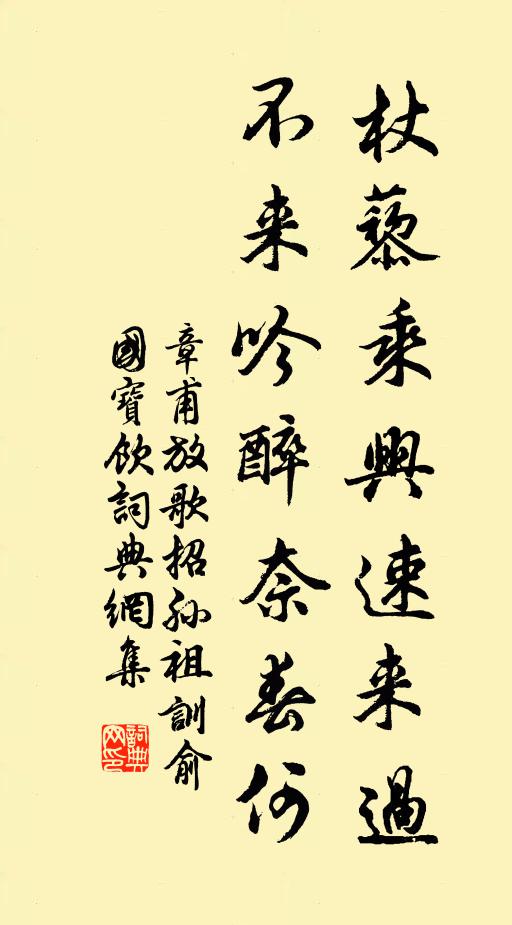 杖藜乘興速来過
不来吟醉奈春何
章甫放歌招孙祖訓俞
國寶飲詞典網集
詞典网印